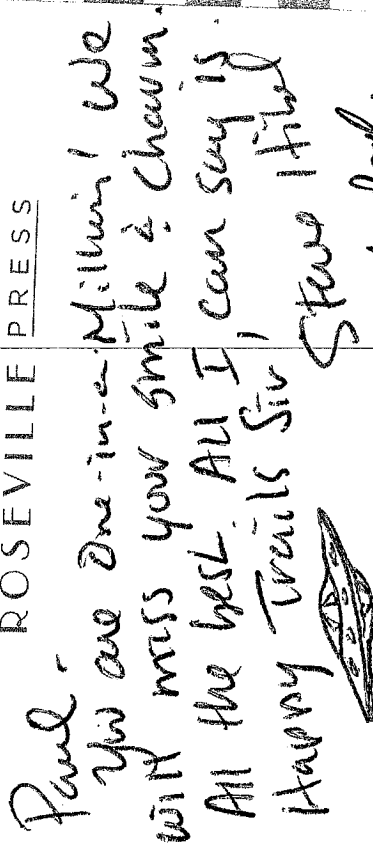 ROSEVILLE PRESS
Paul -
You are One-in-a-Million! We
will miss your smile & charm.
All the best. All I can say is,
Happy Trails Sir
Steve